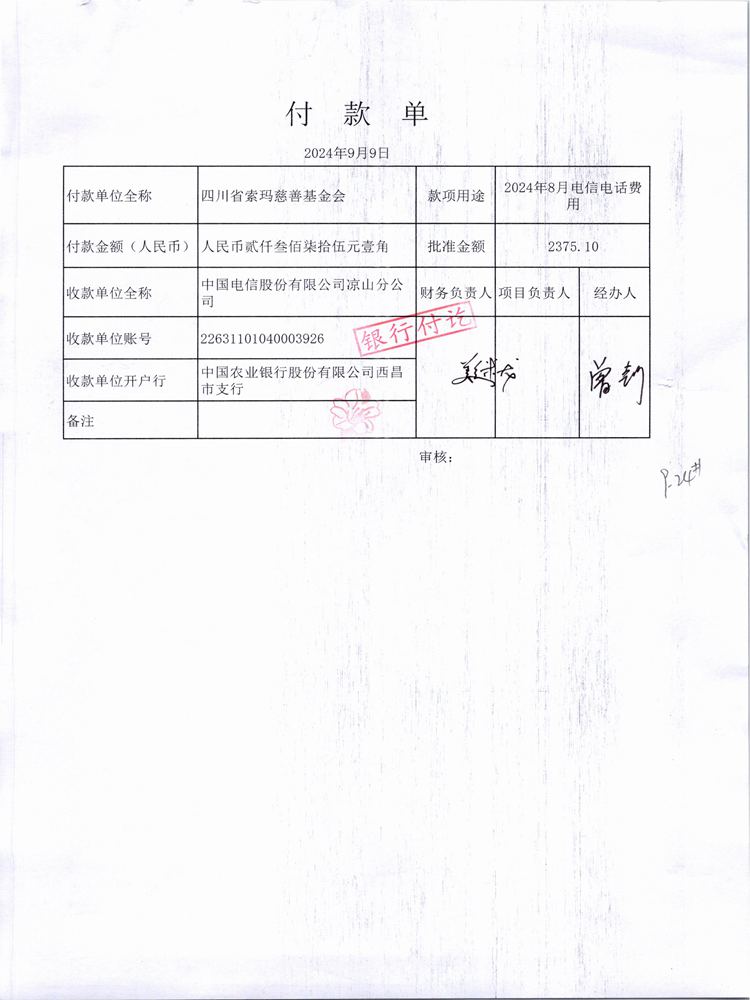 付 款 单
2024年9月9日
付款单位全称 四川省索玛慈善基金会 款项用途 2024年8月电信电话费
用
付款金额（人民币） 人民币贰仟叁佰柒拾伍元壹角 批准金额 2375.10
收款单位全称 中国电信股份有限公司凉山分公
司 财务负责人 项目负责人 经办人
收款单位账号 22631101040003926
银行付讫
收款单位开户行 中国农业银行股份有限公司西昌
市支行
备注
审核：
P-24#